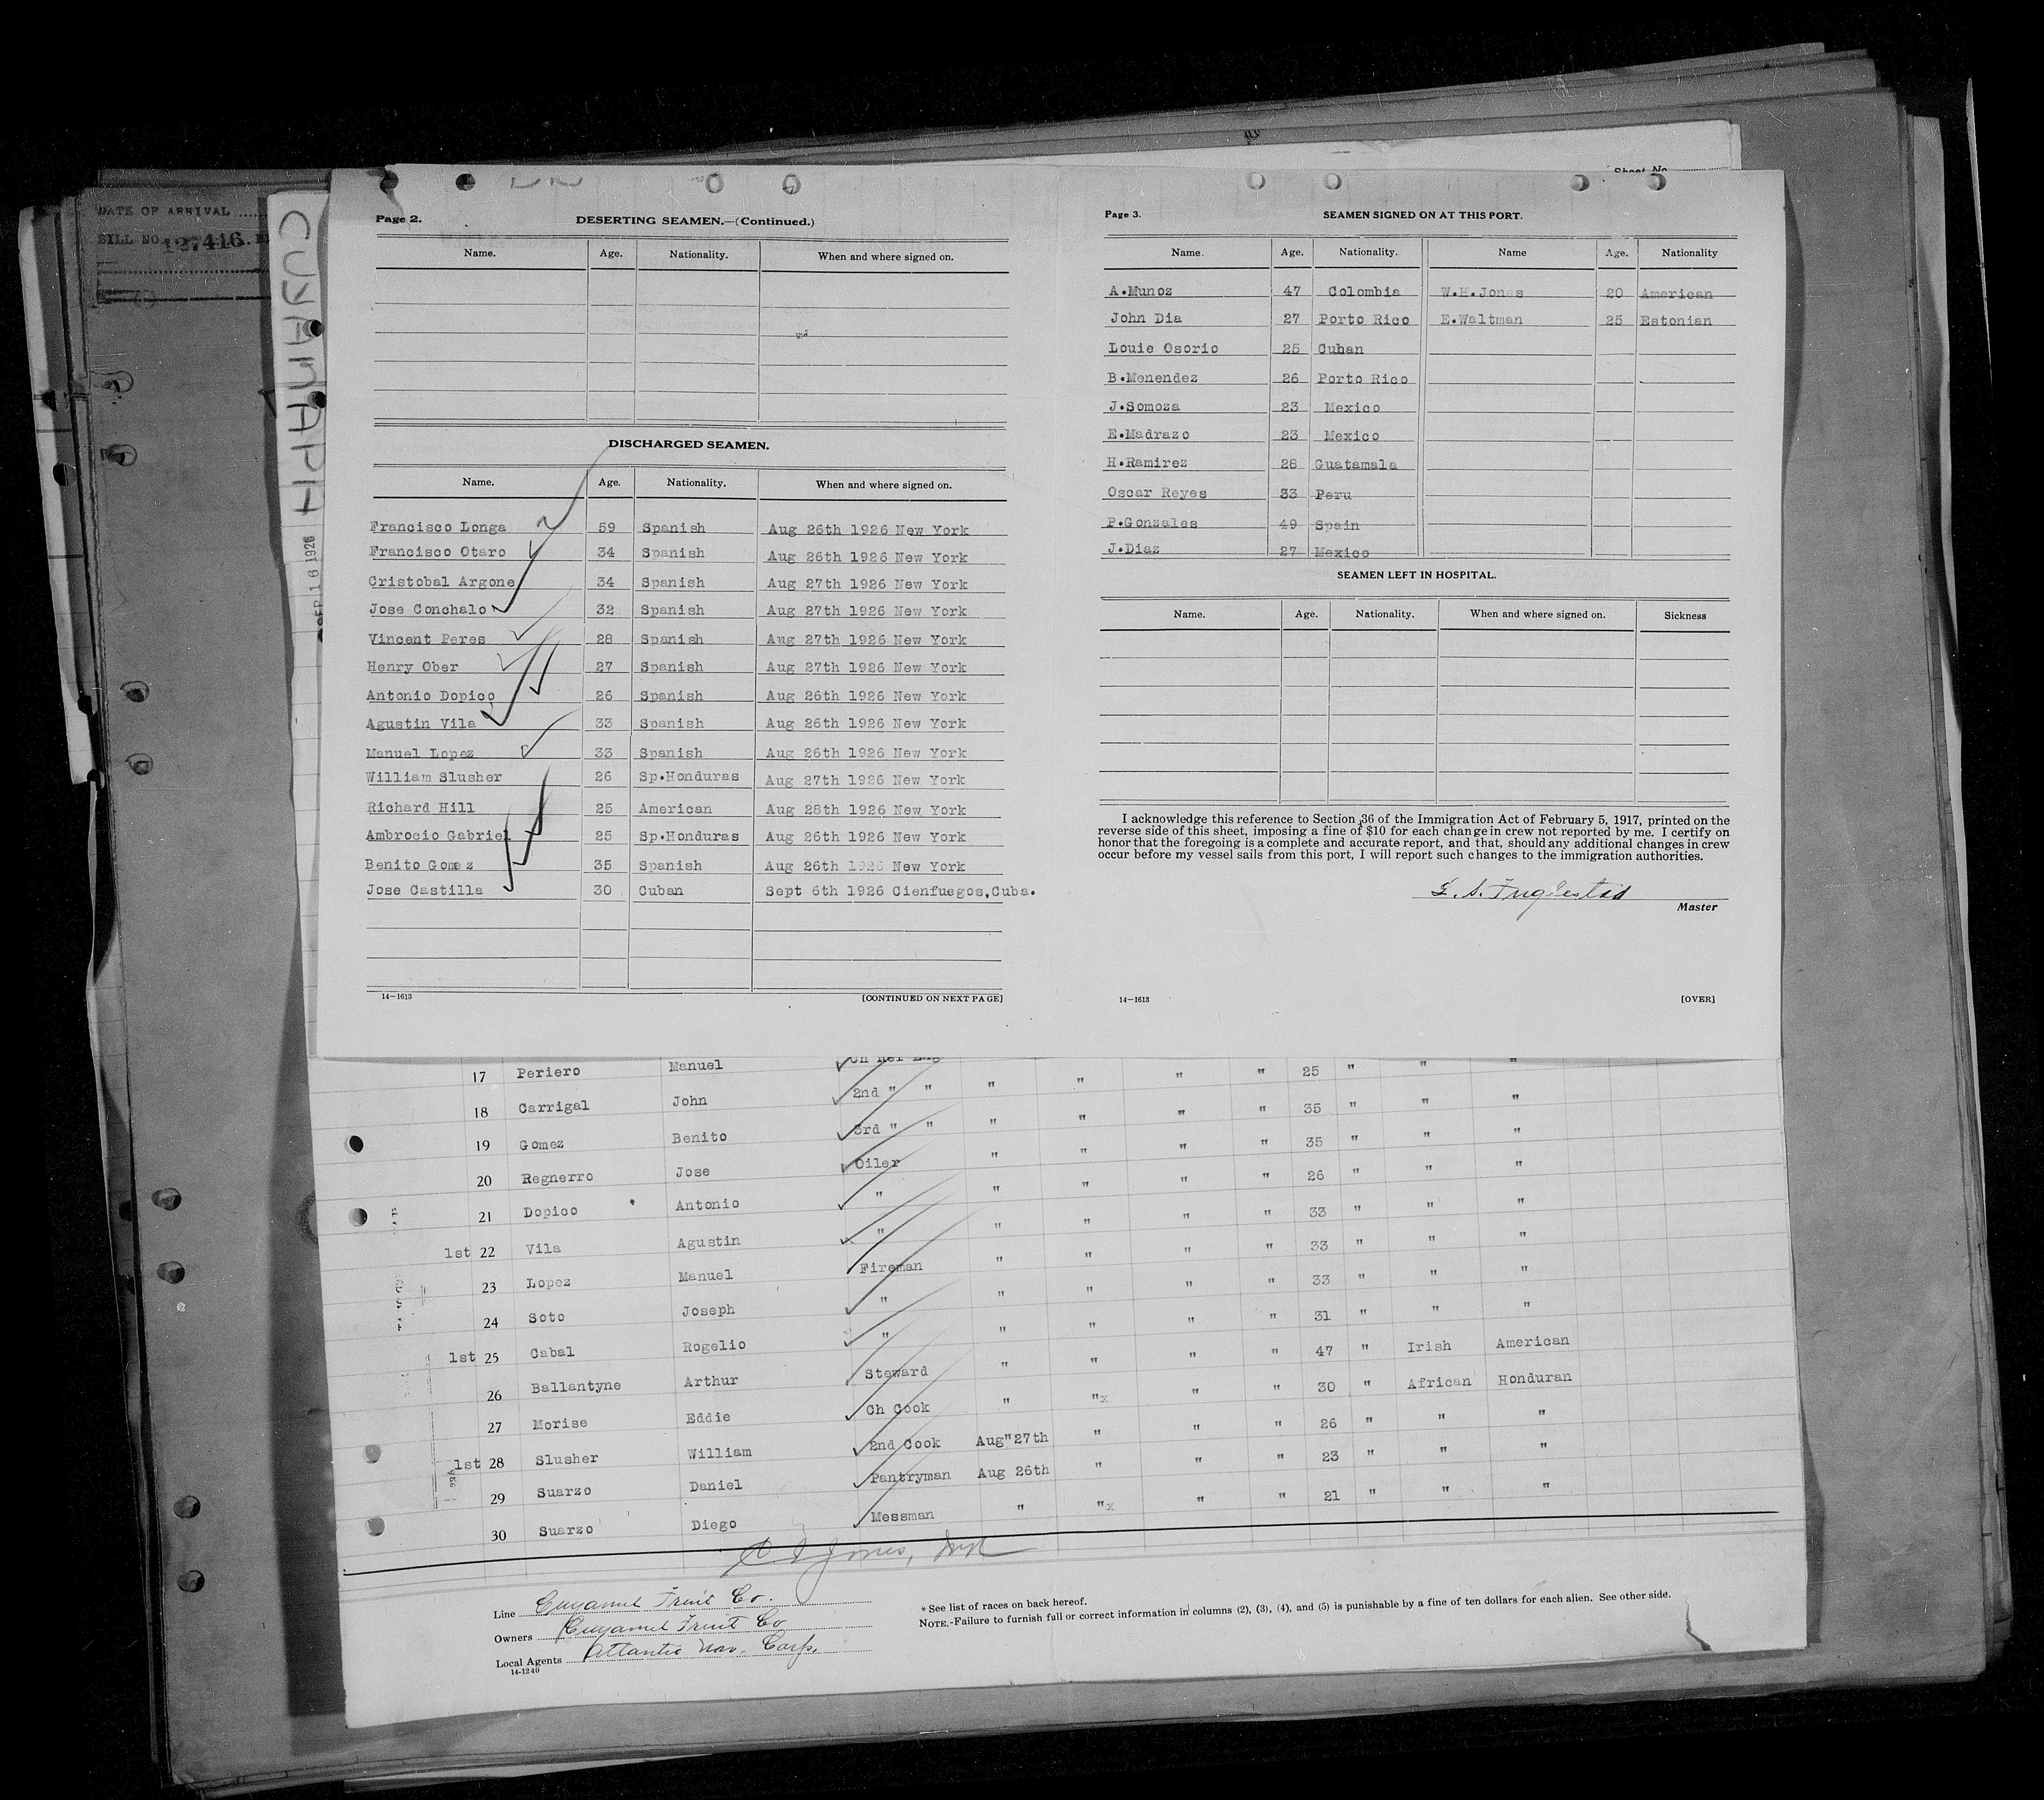 Sheet No.
DATE OF ARRIVAL
BILL NO. 127,416.
CUYAMAPH
SEP 16 1926
Page 2.
DESERTING SEAMEN.—(Continued.)
Name. Age. Nationality. When and where signed on.
DISCHARGED SEAMEN.
Name. Age. Nationality. When and where signed on.
Francisco Longa 59 Spanish Aug 26th 1926 New York
Francisco Otaro 34 Spanish Aug 26th 1926 New York
Cristobal Argone 34 Spanish Aug 27th 1926 New York
Jose Conchalo 32 Spanish Aug 27th 1926 New York
Vincent Peres 28 Spanish Aug 27th 1926 New York
Henry Ober 27 Spanish Aug 27th 1926 New York
Antonio Dopico 26 Spanish Aug 26th 1926 New York
Agustin Vila 33 Spanish Aug 26th 1926 New York
Manuel Lopez 33 Spanish Aug 26th 1926 New York
William Slusher 26 Sp.Honduras Aug 27th 1926 New York
Richard Hill 25 American Aug 28th 1926 New York
Ambrocio Gabriel 25 Sp.Honduras Aug 26th 1926 New York
Benito Gomez 35 Spanish Aug 26th 1926 New York
Jose Castilla 30 Cuban Sept 6th 1926 Cienfuegos,Cuba.
14—1613 [CONTINUED ON NEXT PAGE]
Page 3.
SEAMEN SIGNED ON AT THIS PORT.
Name. Age. Nationality. Name Age. Nationality
A.Munoz 47 Colombia W.H.Jones 20 American
John Dia 27 Porto Rico E.Waltman 25 Estonian
Louie Osorio 25 Cuban
B.Menendez 26 Porto Rico
J.Somoza 23 Mexico
E.Madrazo 23 Mexico
H.Ramirez 28 Guatamala
Oscar Reyes 33 Peru
P.Gonzales 49 Spain
J.Diaz 27 Mexico
SEAMEN LEFT IN HOSPITAL.
Name. Age. Nationality. When and where signed on. Sickness
I acknowledge this reference to Section 36 of the Immigration Act of February 5, 1917, printed on the
reverse side of this sheet, imposing a fine of $10 for each change in crew not reported by me. I certify on
honor that the foregoing is a complete and accurate report, and that, should any additional changes in crew
occur before my vessel sails from this port, I will report such changes to the immigration authorities.
Master
14—1613 [OVER]
17 Periero Manuel Ch Ref Eng " " " " 25 " " "
18 Carrigal John 2nd " " " " " " 35 " " "
19 Gomez Benito 3rd " " " " " " 35 " " "
20 Regnerro Jose Oiler " " " " 26 " " "
21 Dopico Antonio " " " " " 33 " " "
1st 22 Vila Agustin " " " " " 33 " " "
23 Lopez Manuel Fireman " " " " 33 " " "
24 Soto Joseph " " " " " 31 " " "
1st 25 Cabal Rogelio " " " " " 47 " Irish American
26 Ballantyne Arthur Steward " " " " 30 " African Honduran
27 Morise Eddie Ch Cook " "x " " 26 " " "
1st 28 Slusher William 2nd Cook Aug"27th " " " 23 " " "
29 Suarzo Daniel Pantryman Aug 26th " " " 21 " " "
30 Suarzo Diego Messman " "x
Line Cuyamel Fruit Co.
Owners Cuyamel Fruit Co
Local Agents Atlantic Nav. Corp.
14-1240
*See list of races on back hereof.
NOTE.-Failure to furnish full or correct information in columns (2), (3), (4), and (5) is punishable by a fine of ten dollars for each alien. See other side.